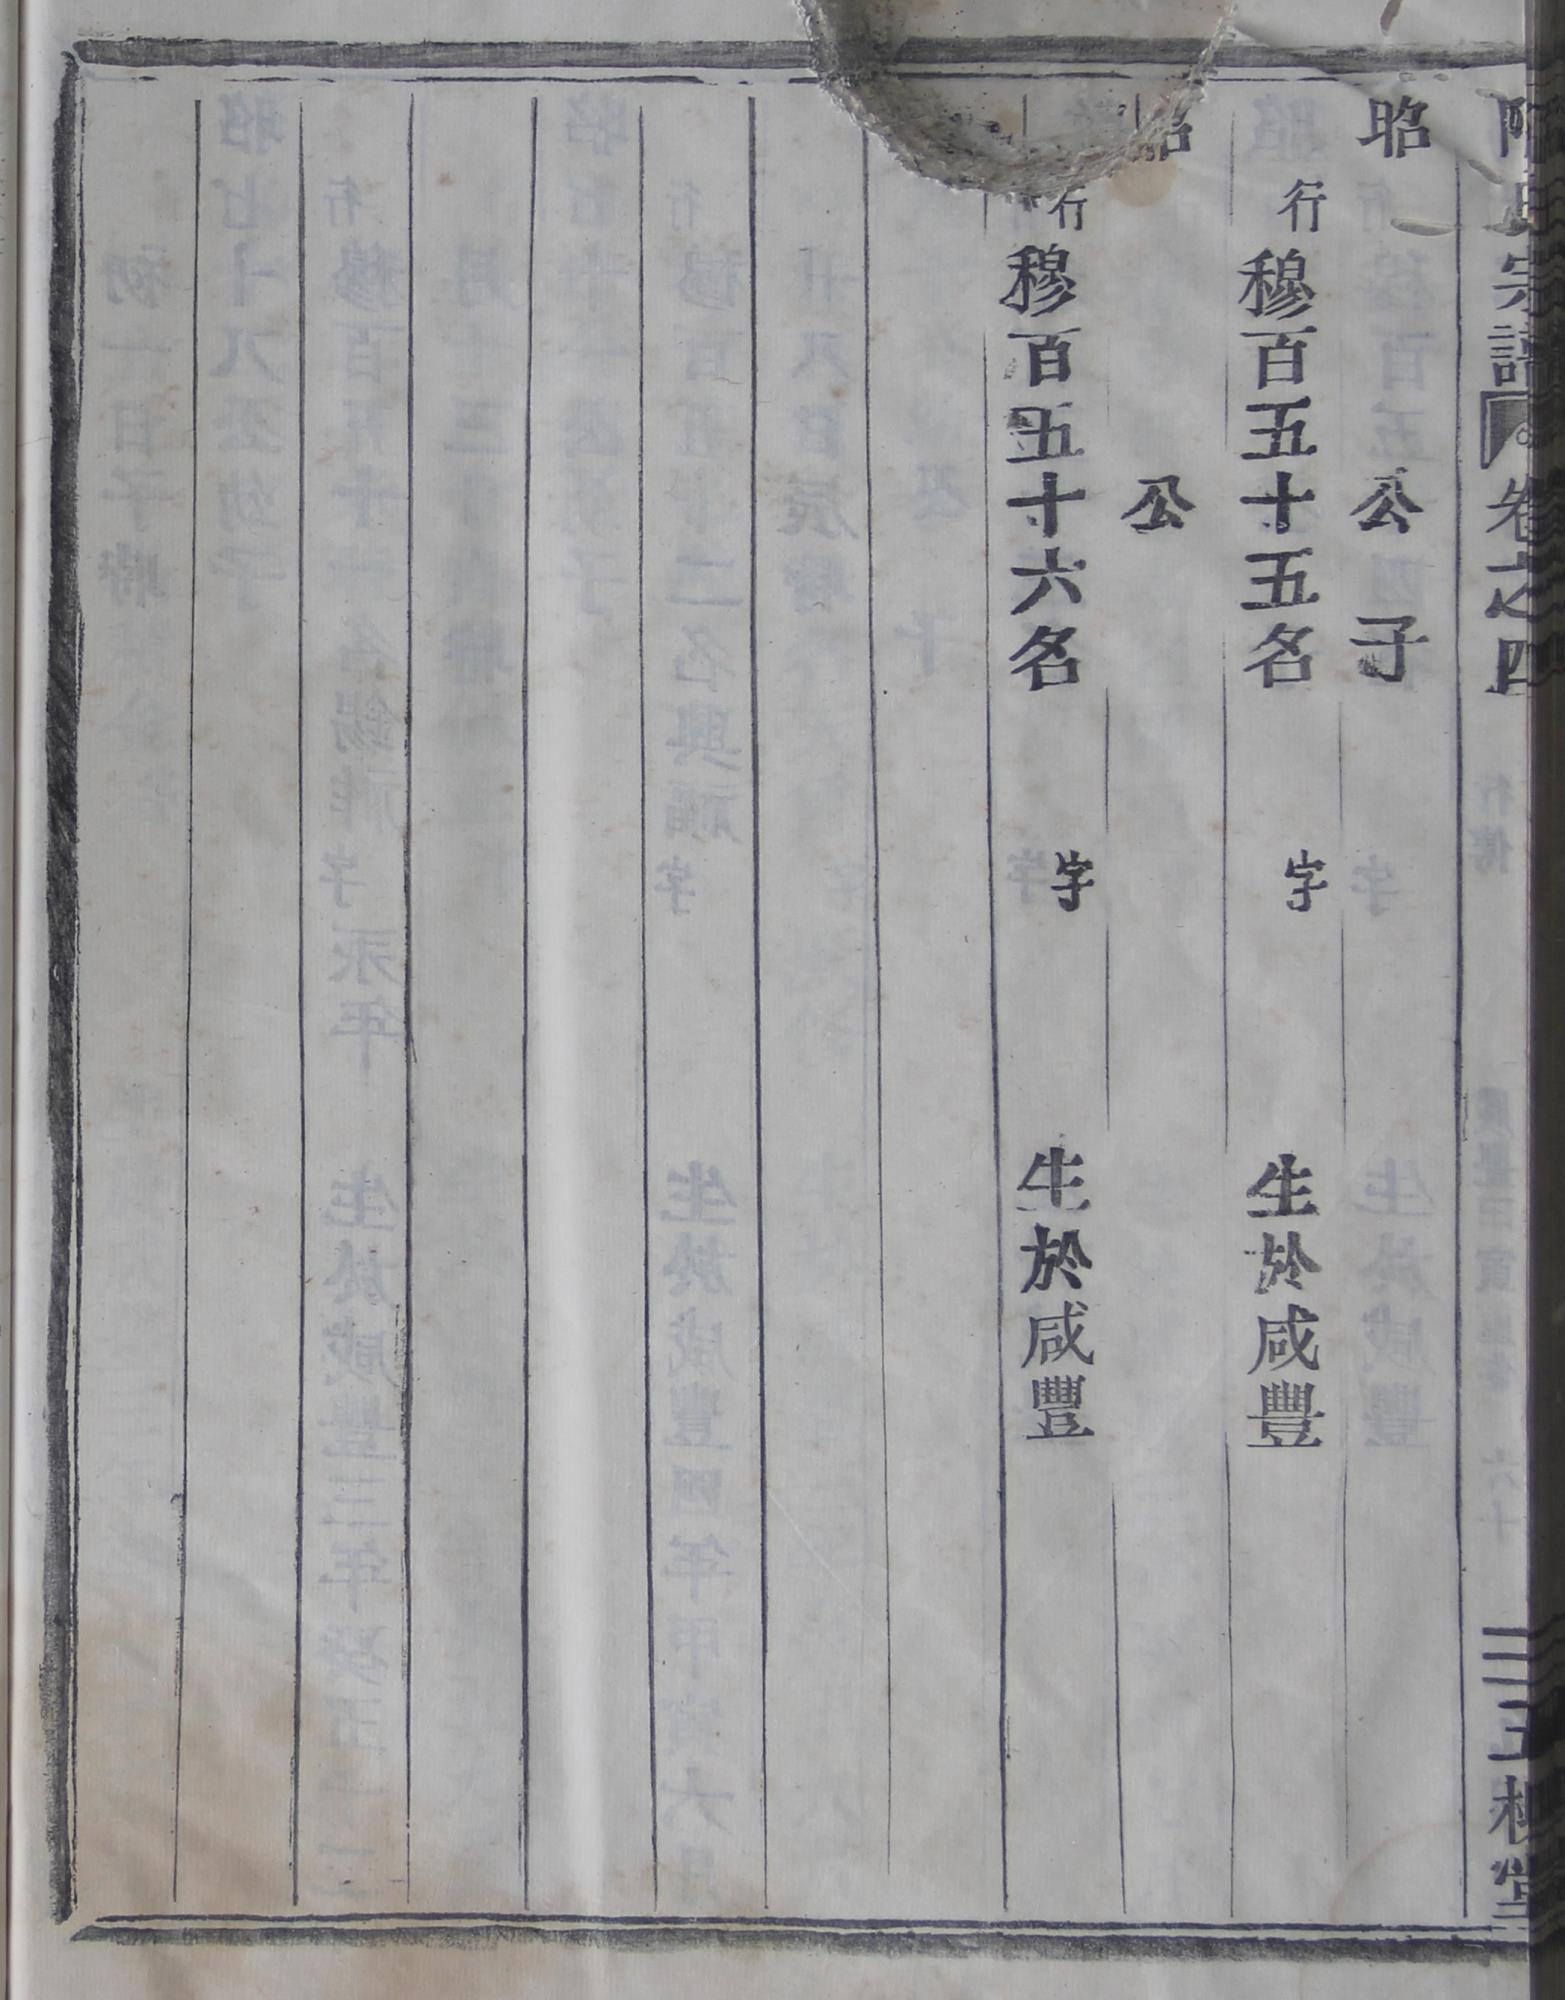 氏宗譜 卷之四 三 五桂堂
昭 公 子
行 穆百五十五名 字 生於咸豐
昭 公
行 穆百五十六名 字 生於咸豐